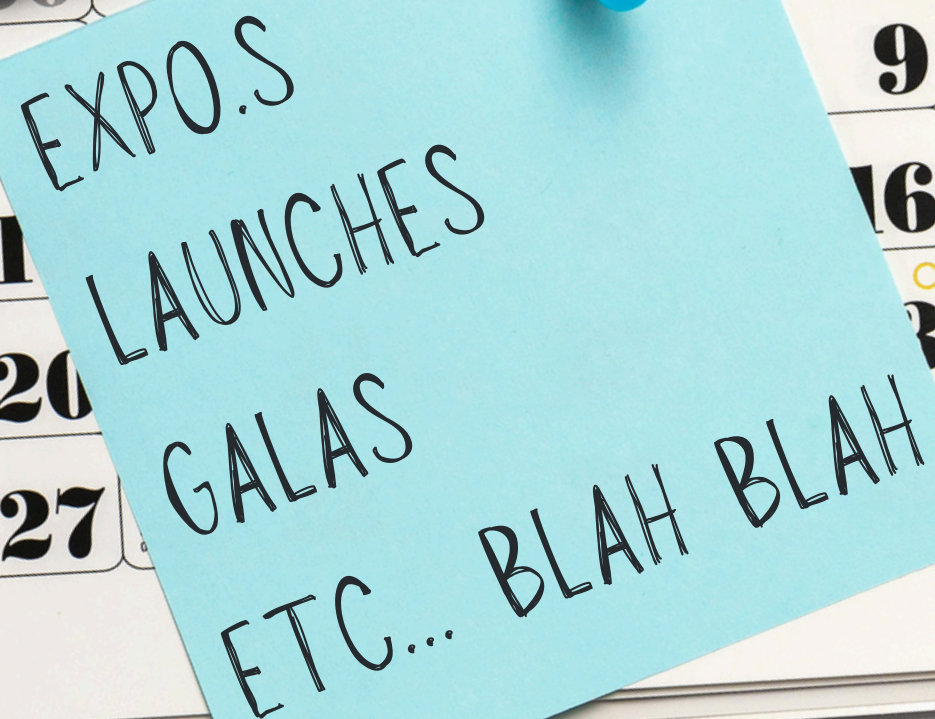 EXPO.S
LAUNCHES
GALAS
ETC... BLAH BLAH
9
16
20
27